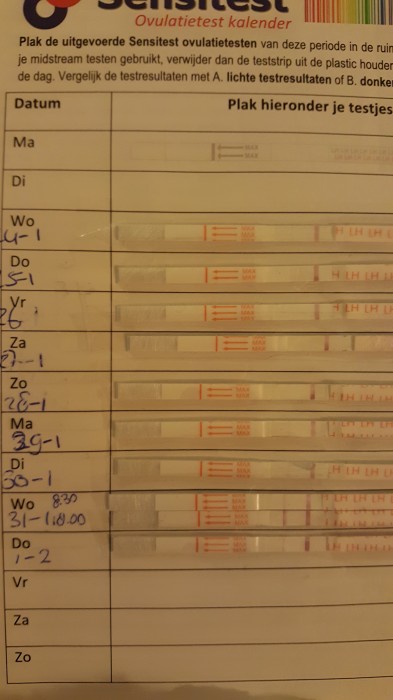 Sensitest
Ovulatietest kalender
Plak de uitgevoerde Sensitest ovulatietesten van deze periode in de
je midstream testen gebruikt, verwijder dan de teststrip uit de plastic houder
de dag. Vergelijk de testresultaten met A. lichte testresultaten of B.
Datum
Plak hieronder je testjes
Ma
MAX
MAX
Di
Wo
4-1
LH LH
Do
5-1
LH LH
Vr
26
LH LH
Za
27-1
Zo
28-1
LH LH
Ma
29-1
Di
30-1
LH LH
Wo 830
31-1 18.00
LH LH LH
Do
1-2
Vr
Za
Zo